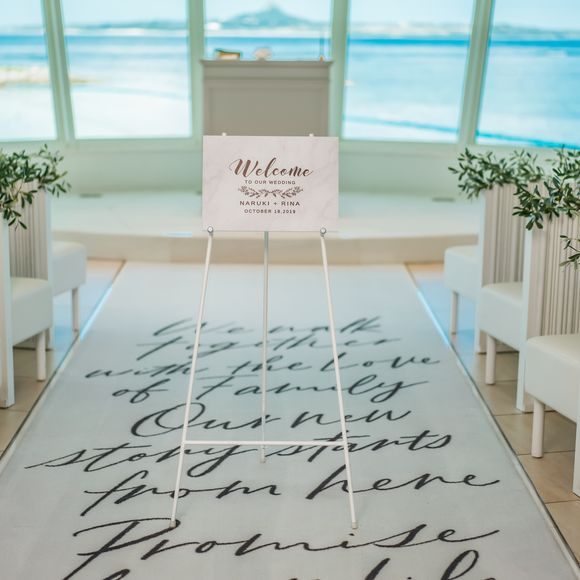 Welcome
TO OUR WEDDING
NARUKI + RINA
OCTOBER 18,2019
We walk
together
with the love
of Family
Our new
story starts
from here
Promise